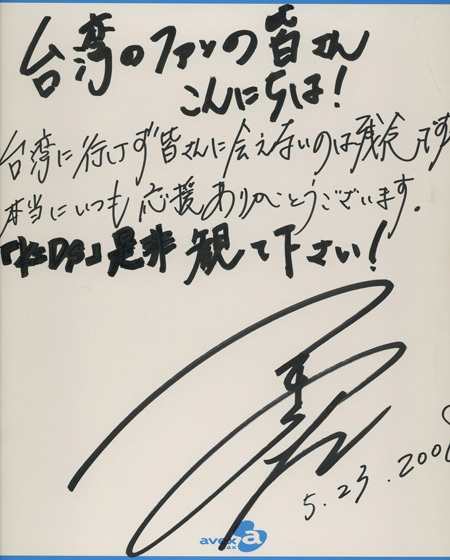 台湾のファンの皆さん
こんにちは!
台湾に行けず皆さんに会えないのは残念です
本当にいつも応援ありがとうございます.
是非 観て下さい!
5.23.200
avex